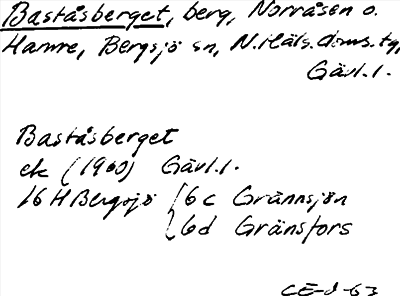 Baståsberget, berg, Norråsen o.
Hamre, Bergsjö sn, N. Häls. doms. tg,
Gävl.l.
Baståsberget
ek (1960) Gävl.l.
16 H Bergsjö 6c Grännsjön
6d Gränsfors